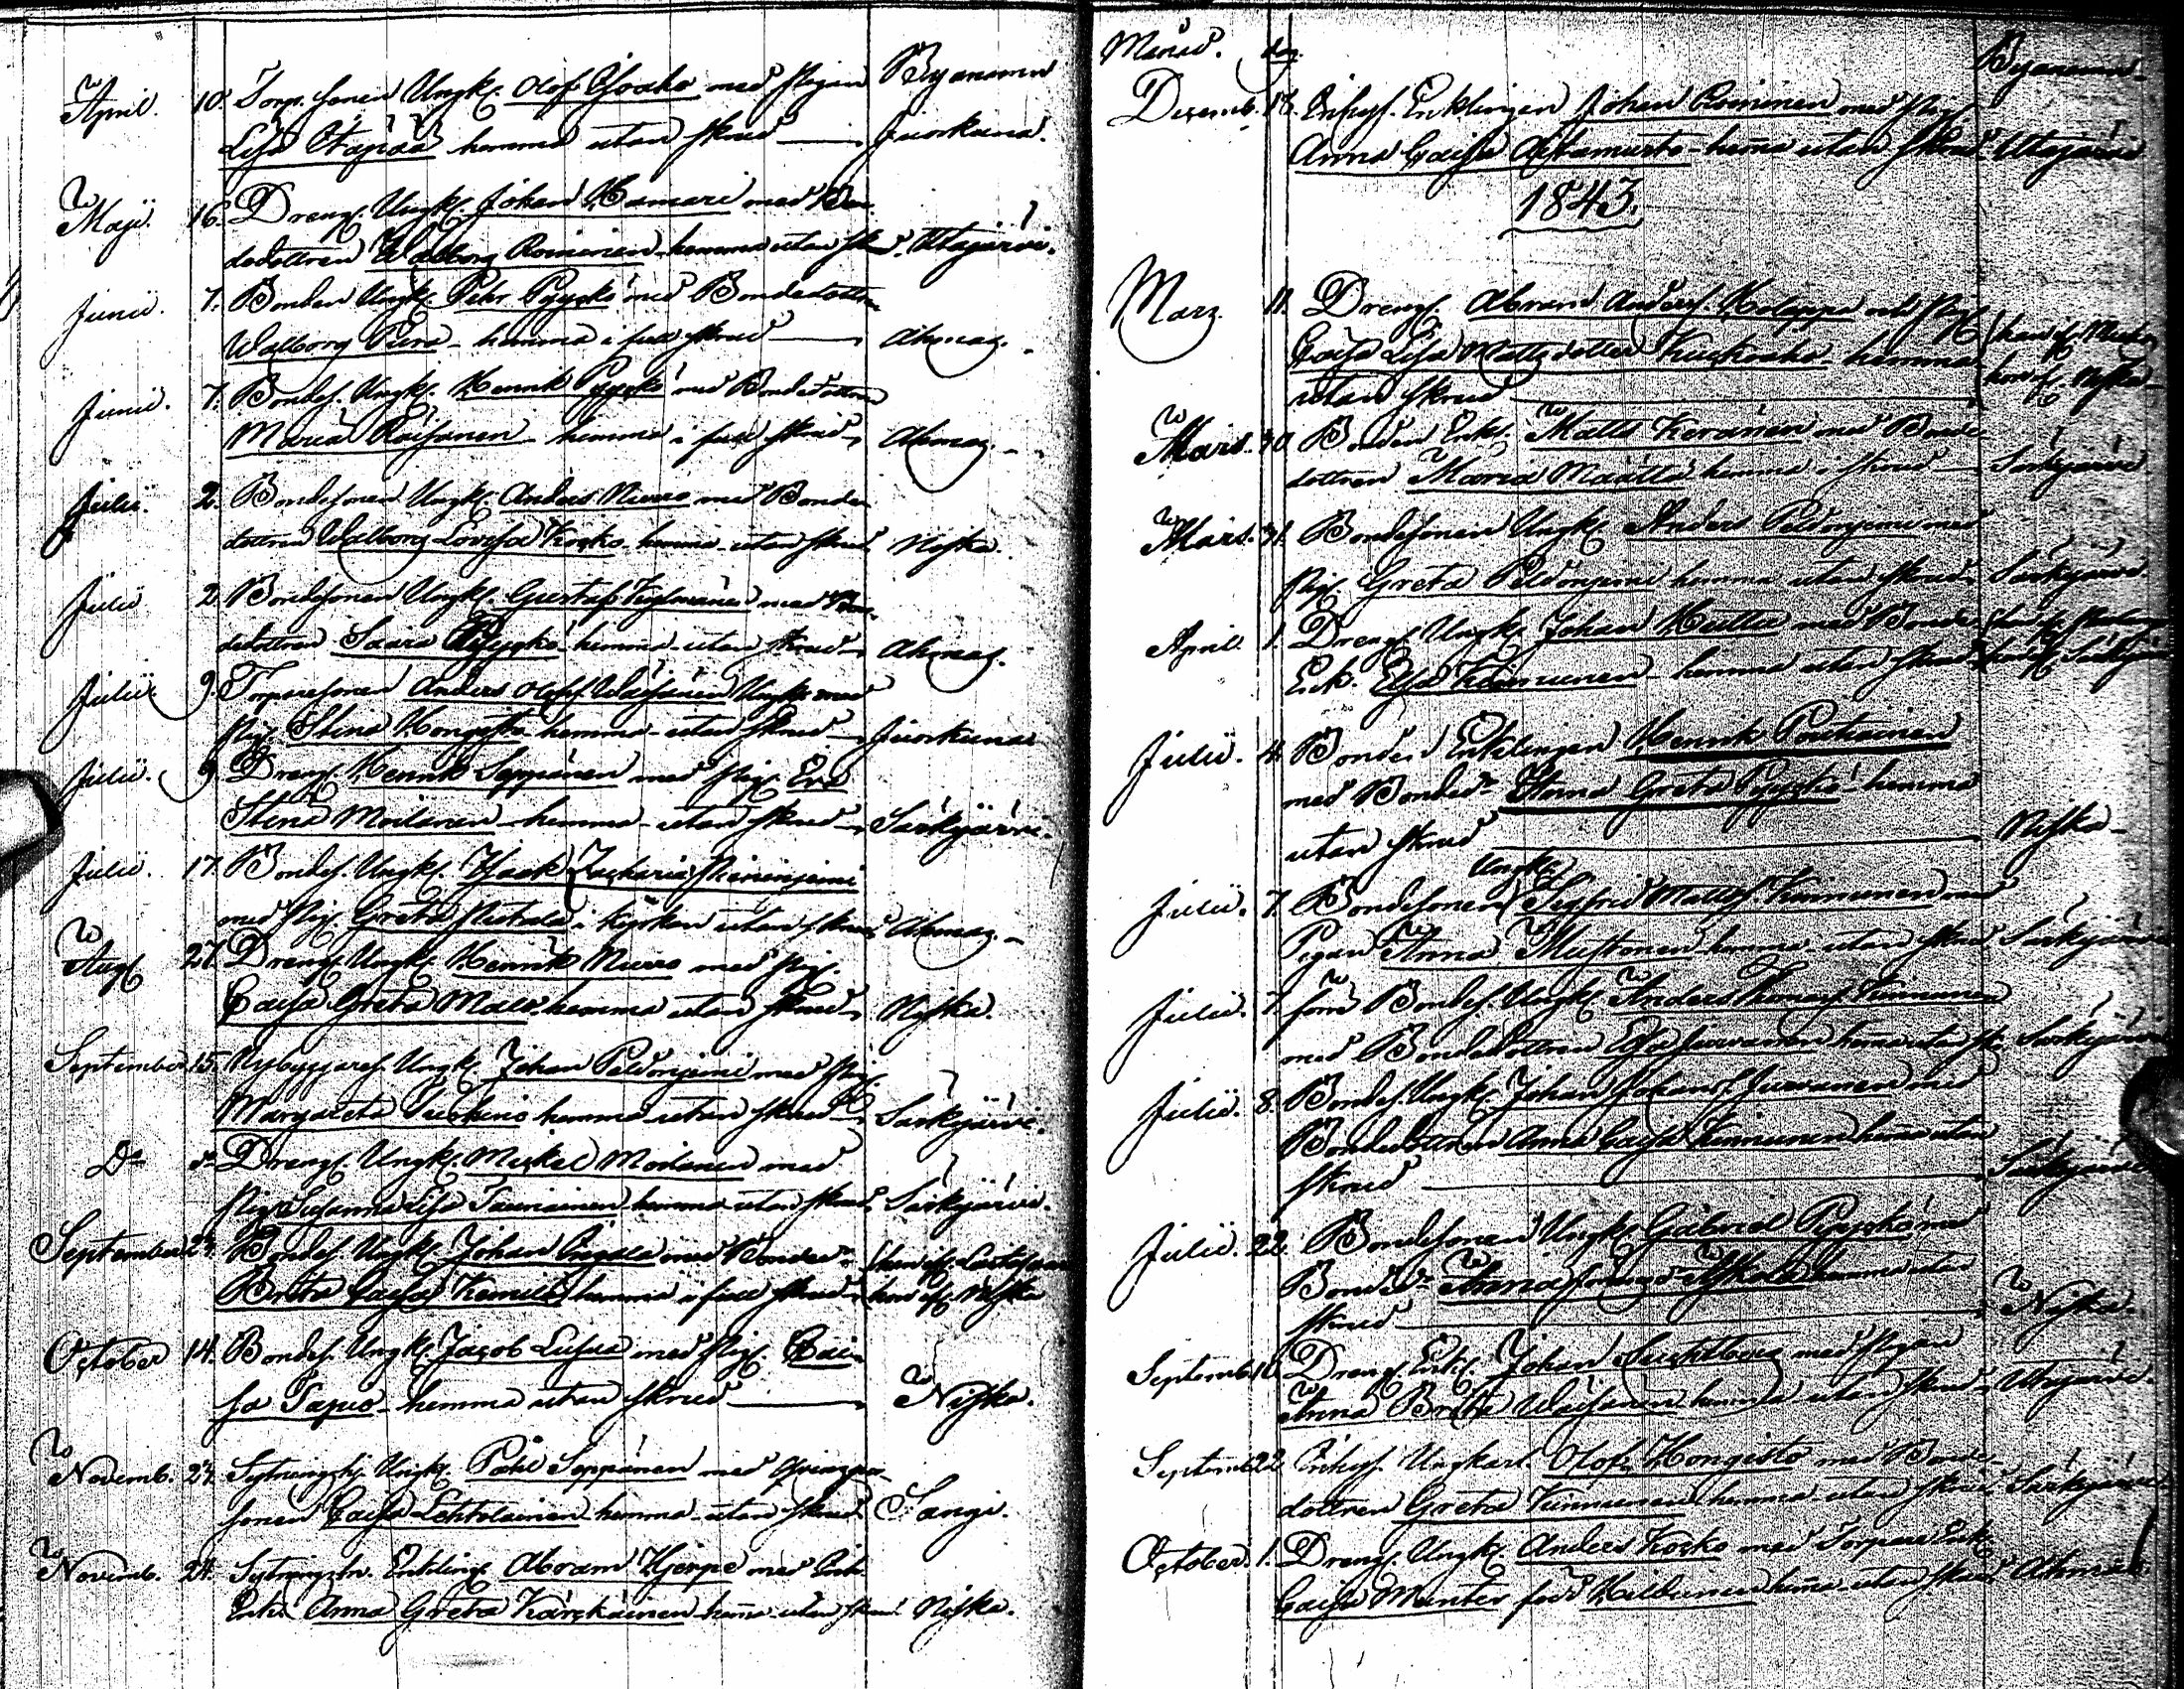 Byanamn
April. 10. Torp. sonen Ungk. Olof med Pigan
Lisa hemma utan skrud Juorkuna.
Maji. 16. Dreng. Ungk. Johan Hamari med Bon-
dedottren Walborg Roininen hemma utan skrud. Utajärvi.
Junii. 7. Bonden Ungk. Pehr Pyyckö med Bondedottren
Walborg Pura - hemma i full skrud Ahmas.
Junii. 7. Bondes. Ungk. Henrik Pyyckö med Bondedottren
Maria Räisänen hemma i full skrud Ahmas.
Julii. 2. Bondesonen Ungk. Anders Nurro med Bonde-
dottren Walborg Lovisa Kocko hemma utan skrud Niska.
Julii 2. Bondesonen Ungk. Gustaf med Bon-
dedottren Saara Pyyckö hemma utan skrud Ahmas.
Julii 9. Torparesonen Anders Olofs. Wäisänen Ungk. med
Pig. Stina Hongisto hemma utan skrud Juorkuna
Julii. 9. Dreng. Henrik Seppänen med Pig. Eva
Stina Moilanen hemma utan skrud Särkijärvi.
Julii. 17. Bondes. Ungk. Isaak Zacharias Nieminjemi
med Pig. Greta i kyrkan utan skrud Ahmas.
Aug. 27. Dreng. Ungk. Henrik Nurro med Pig.
Caisa Greta Malo hemma utan skrud Niska.
September 15. Nybyggares. Ungk. Johan Peldonjemi med Pig.
Margareta hemma utan skrud Särkijärvi.
Do do Dreng. Ungk. Mickel Moilanen med
Pig. Susanna Lisa Tauriainen hemma utan skrud Särkijärvi.
September Bondes. Ungk. Johan med Bonded.
Brita Caisa hemma i full skrud hon af Niska
October 14. Bondes. Ungk. Jacob med Pig. Cai-
sa Tapio - hemma utan skrud Niska.
Novemb. Sytningsk. Ungk. Påhl Seppänen med
Caisa Lehtolainen hemma utan skrud Sangi.
Novemb. 24. Enkling. Abram Hjerpe med
Enk. Anna Greta Kärckäinen hema utan skrud Niska.
Månad. dag. Byanamn
Decemb. 18. Inhys. Enklingen Johan Roininen med Pig.
Anna Caisa Ahtamusto - hema utan skrud Utajärvi
1843.
Marz. 11. Dreng. Abram Anders. Holappa med Pig.
Caisa Lisa Mattsdotter hemma
utan skrud hon af Niska
Mars. 30 Bonden Enkl. Matts Keränen med Bonde-
dottren Maria Määttä hemma i skrud Särkijärvi
Mars. 31. Bondesonen Ungk. Anders Peldonjemi med
Pig. Greta Peldonjemi hemma utan skrud Särkijärvi.
April. 1. Dreng. Ungk. Johan Huttu med Bonde
Enk. Elsa Kinnunen - hemma utan skrud
Julii. 4. Bonden Enklingen Henrik Poutiainen
med Bonded. Anna Greta Pyyckö hemma
utan skrud Niska
Julii. 7. Bondesonen Ungk. Sigfrid Matts. Kinnunen med
Pigan Anna Mustonen hemma utan skrud Särkijärvi
Julii. 7. Bondes. Ungk. Anders Thomas. Kinnunen
med Bondedottren Elsa Juvanen hema utan sk. Särkijärvi
Julii. 8. Bondes. Ungk. Johan Johans. Juvanen med
Bondedottren Anna Caisa Kinnunen hema utan
skrud Särkijärvi
Julii. 22. Bondesonen Ungk. Gabriel Pyyckö med
Bonded. Anna hemma utan
skrud Niska.
Septemb. Dreng. Enkl. Johan med Pigan
Anna Brita Wäisänen hemma utan skrud Utajärvi.
Septemb. 22 Inhys. Ungkarl. Olof Hongisto med Bonde-
dottren Greta Kinnunen hemma utan skrud Särkijärvi
October. 1. Dreng. Ungk. Anders Kocko med Torpare Enk.
Caisa Munter född Hiltunen hema utan skrud Ahmas.